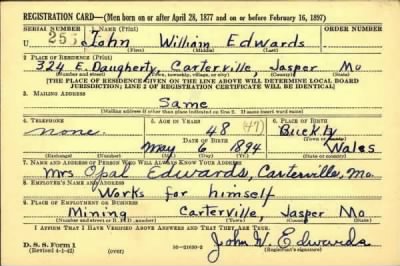 REGISTRATION CARD—(Men born on or after April 28, 1877 and on or before February 16, 1897)
SERIAL NUMBER 1. NAME (Print) ORDER NUMBER
U 253 John William Edwards
(First) (Middle) (Last)
2. PLACE OF RESIDENCE (Print)
324 E. Daugherty, Carterville, Jasper Mo
(Number and street) (Town, township, village, or city) (County) (State)
[THE PLACE OF RESIDENCE GIVEN ON THE LINE ABOVE WILL DETERMINE LOCAL BOARD
JURISDICTION; LINE 2 OF REGISTRATION CERTIFICATE WILL BE IDENTICAL]
3. MAILING ADDRESS
Same
[Mailing address if other than place indicated on line 2. If same insert word same]
4. TELEPHONE 5. AGE IN YEARS 6. PLACE OF BIRTH
none. 48 (47) Buckly
DATE OF BIRTH (Town or county)
May 6 1894 Wales
(Exchange) (Number) (Mo.) (Day) (Yr.) (State or country)
7. NAME AND ADDRESS OF PERSON WHO WILL ALWAYS KNOW YOUR ADDRESS
Mrs Opal Edwards, Carterville, Mo.
8. EMPLOYER'S NAME AND ADDRESS
Works for himself
9. PLACE OF EMPLOYMENT OR BUSINESS
Mining Carterville, Jasper Mo
(Number and street or R. F. D. number) (Town) (County) (State)
I AFFIRM THAT I HAVE VERIFIED ABOVE ANSWERS AND THAT THEY ARE TRUE.
John W. Edwards
D. S. S. Form 1
(Revised 4-1-42) (over) 16—21630-2 (Registrant's signature)